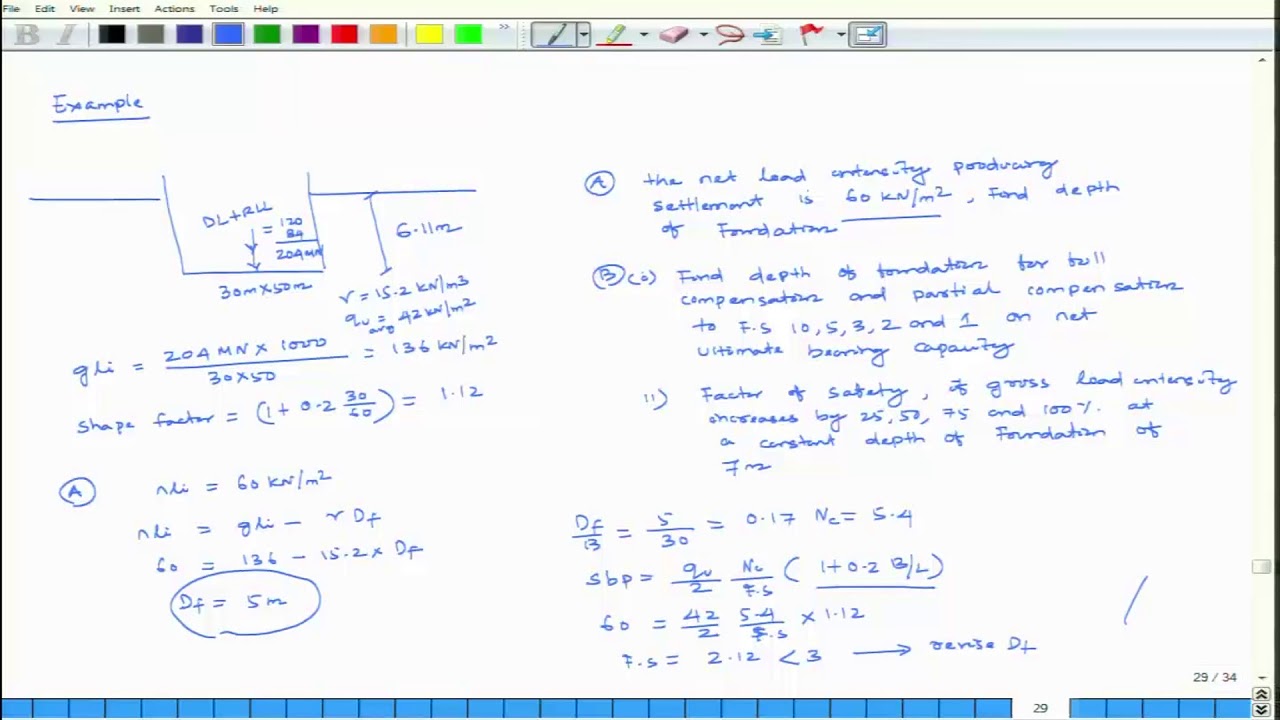 File Edit View Insert Actions Tools Help
Example
DL+RLL
= 120
84
204MN
6.11m
30m×50m
γ = 15.2 kN/m3
qu avg = 42 kN/m2
gli = 204 MN × 1000 / 30×50 = 136 kN/m2
shape factor = (1+0.2 30/50) = 1.12
A nli = 60 kN/m2
nli = gli - γ Df
60 = 136 - 15.2 × Df
Df = 5m
A the net load intensity producing
settlement is 60 kN/m2, Find depth
of Foundation
B (i) Find depth of foundation for full
compensation and partial compensation
to F.S 10, 5, 3, 2 and 1 on net
ultimate bearing capacity
ii) Factor of safety, if gross load intensity
increases by 25, 50, 75 and 100% at
a constant depth of Foundation of
7m
Df/B = 5/30 = 0.17 Nc = 5.4
sbp = qu/2 Nc/F.S (1+0.2 B/L)
60 = 42/2 5.4/F.S × 1.12
F.S = 2.12 < 3 → revise Df
29 / 34
29